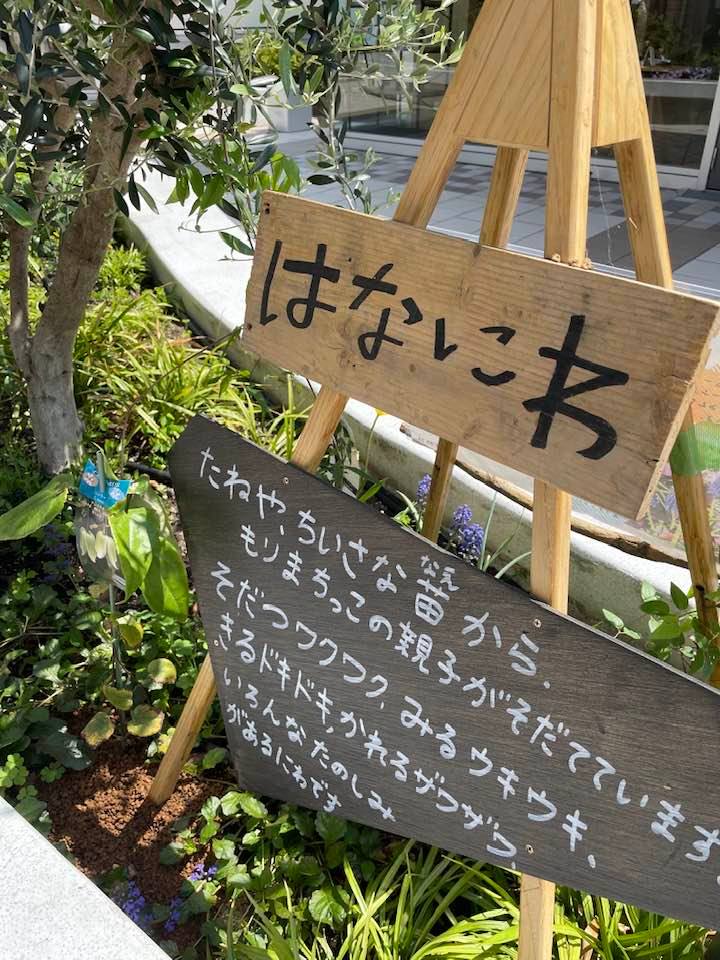 はなにわ
たねや、ちいさな苗から、
なえ
もりまちっこの親子がそだてています。
そだつワクワク、みるウキウキ、
きるドキドキ、かれるザワザワ、
いろんなたのしみ
があるにわです